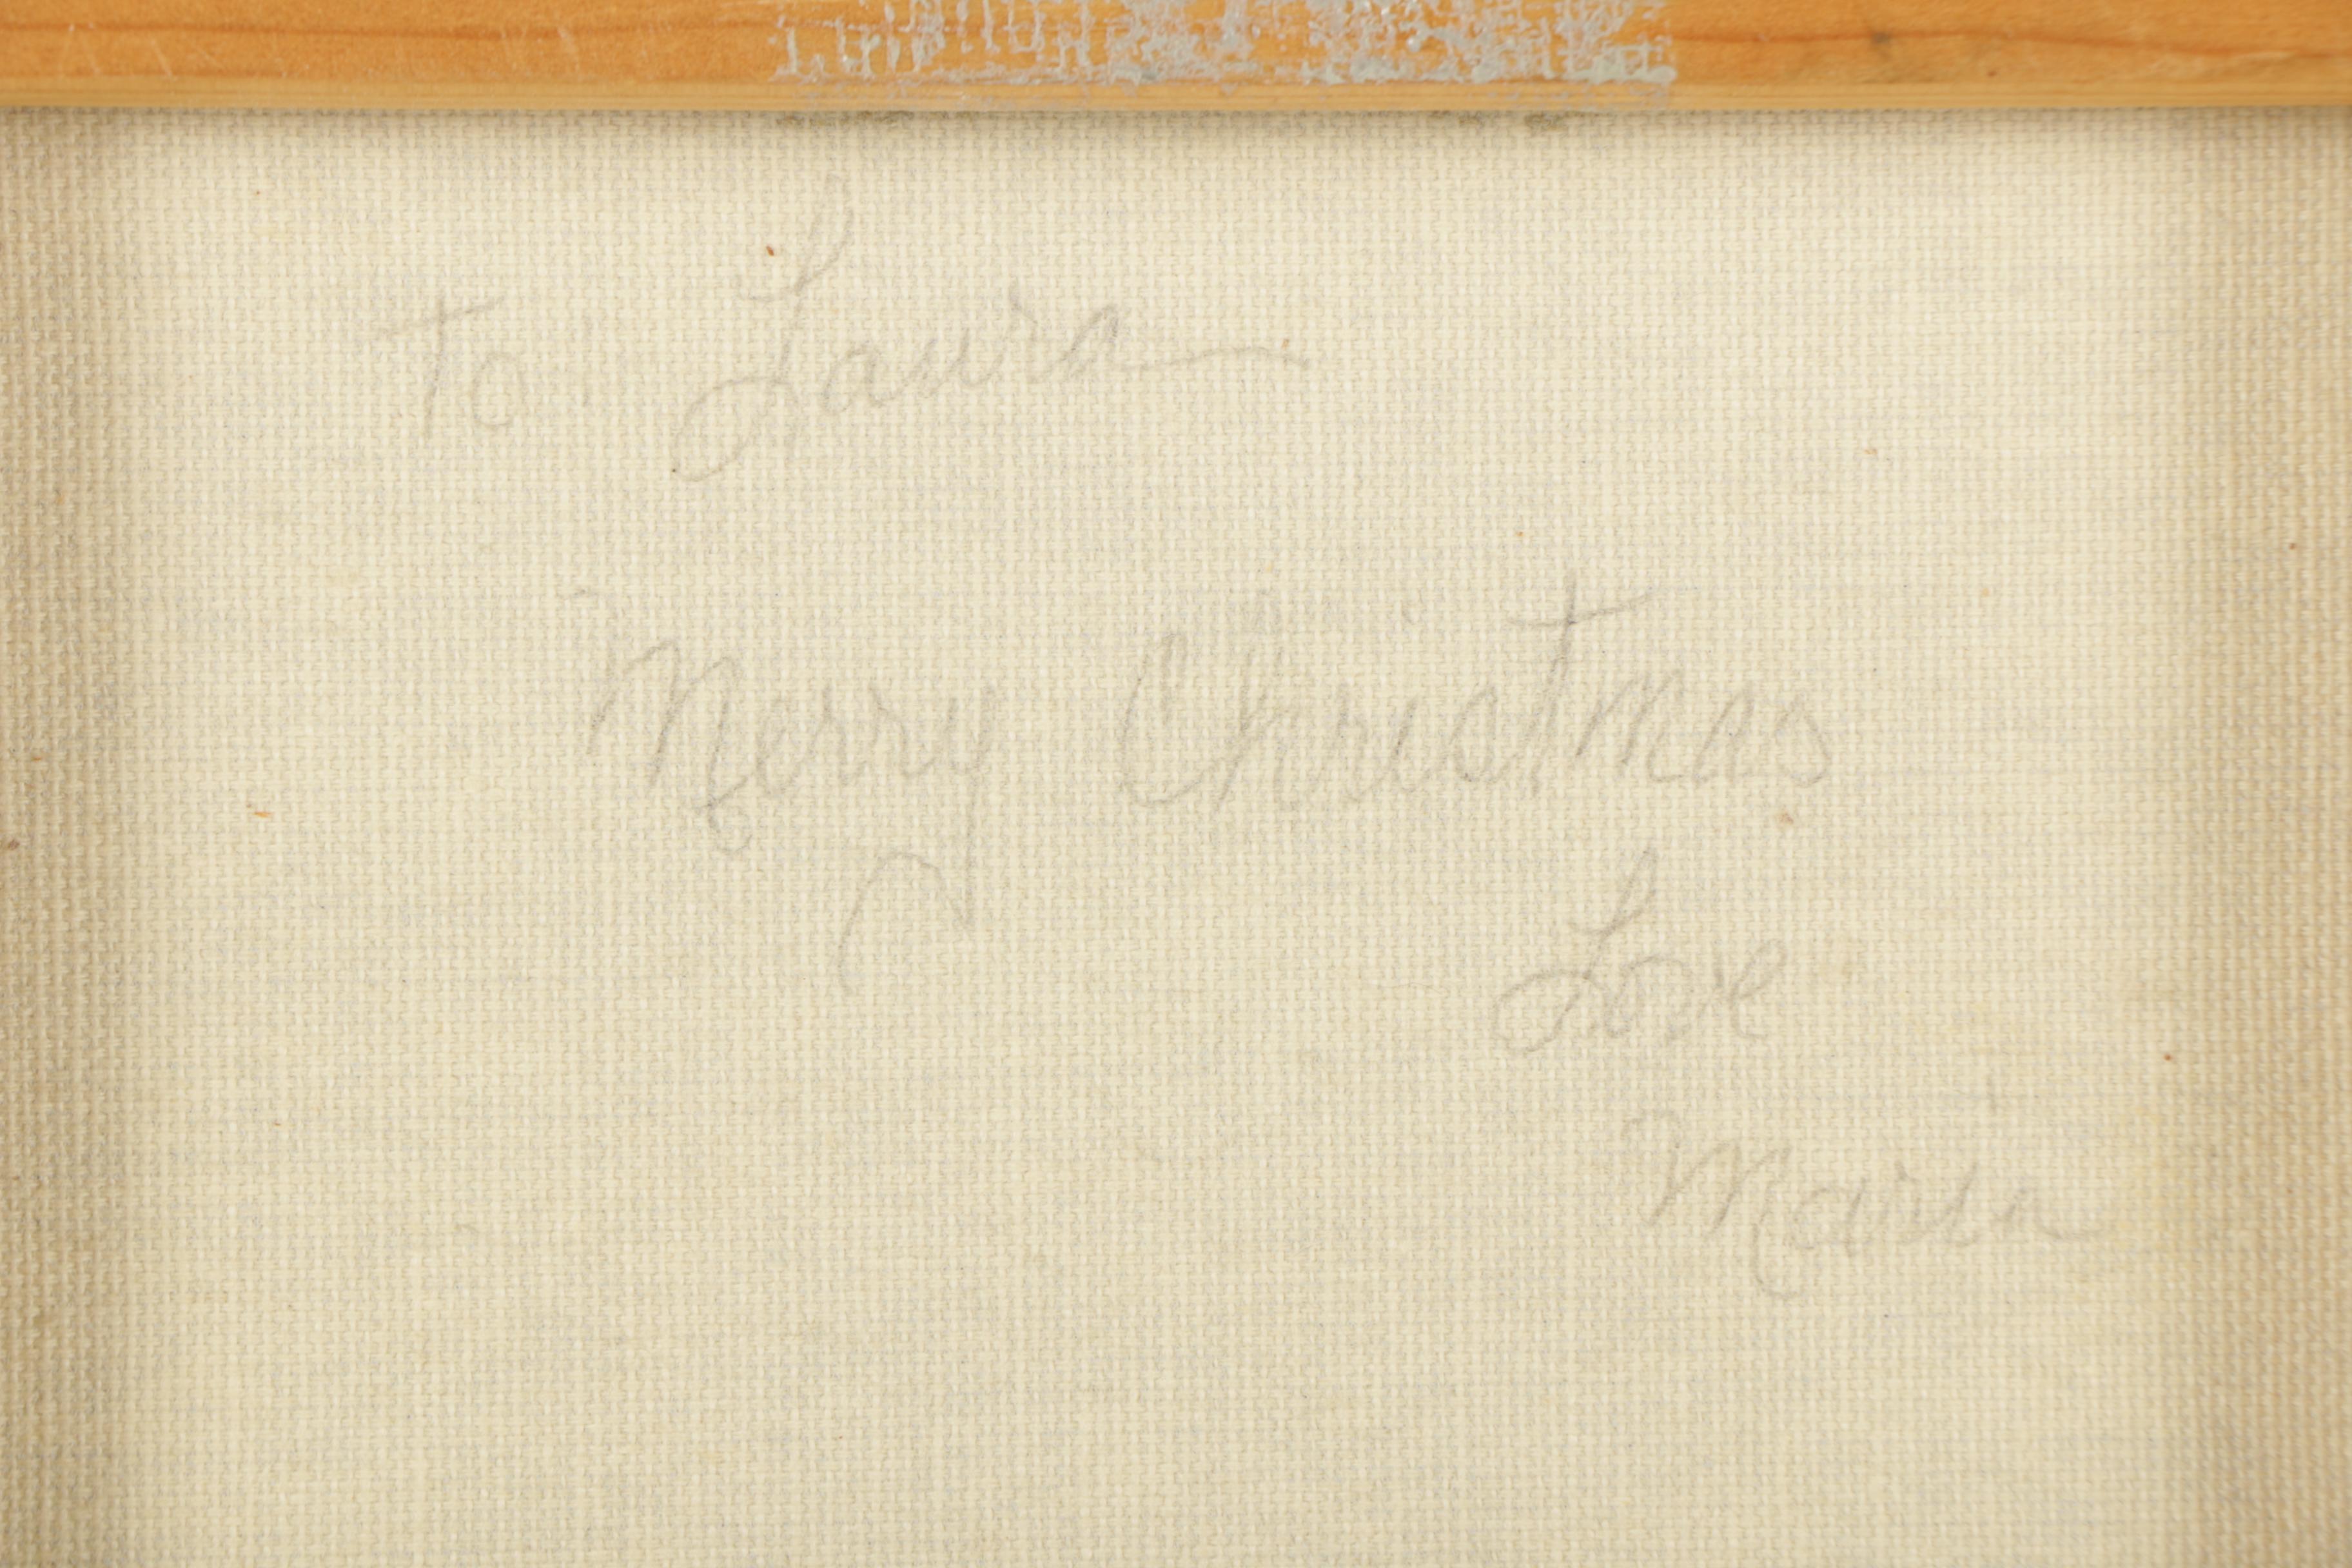 To Laura
Merry Christmas
Love
Maria